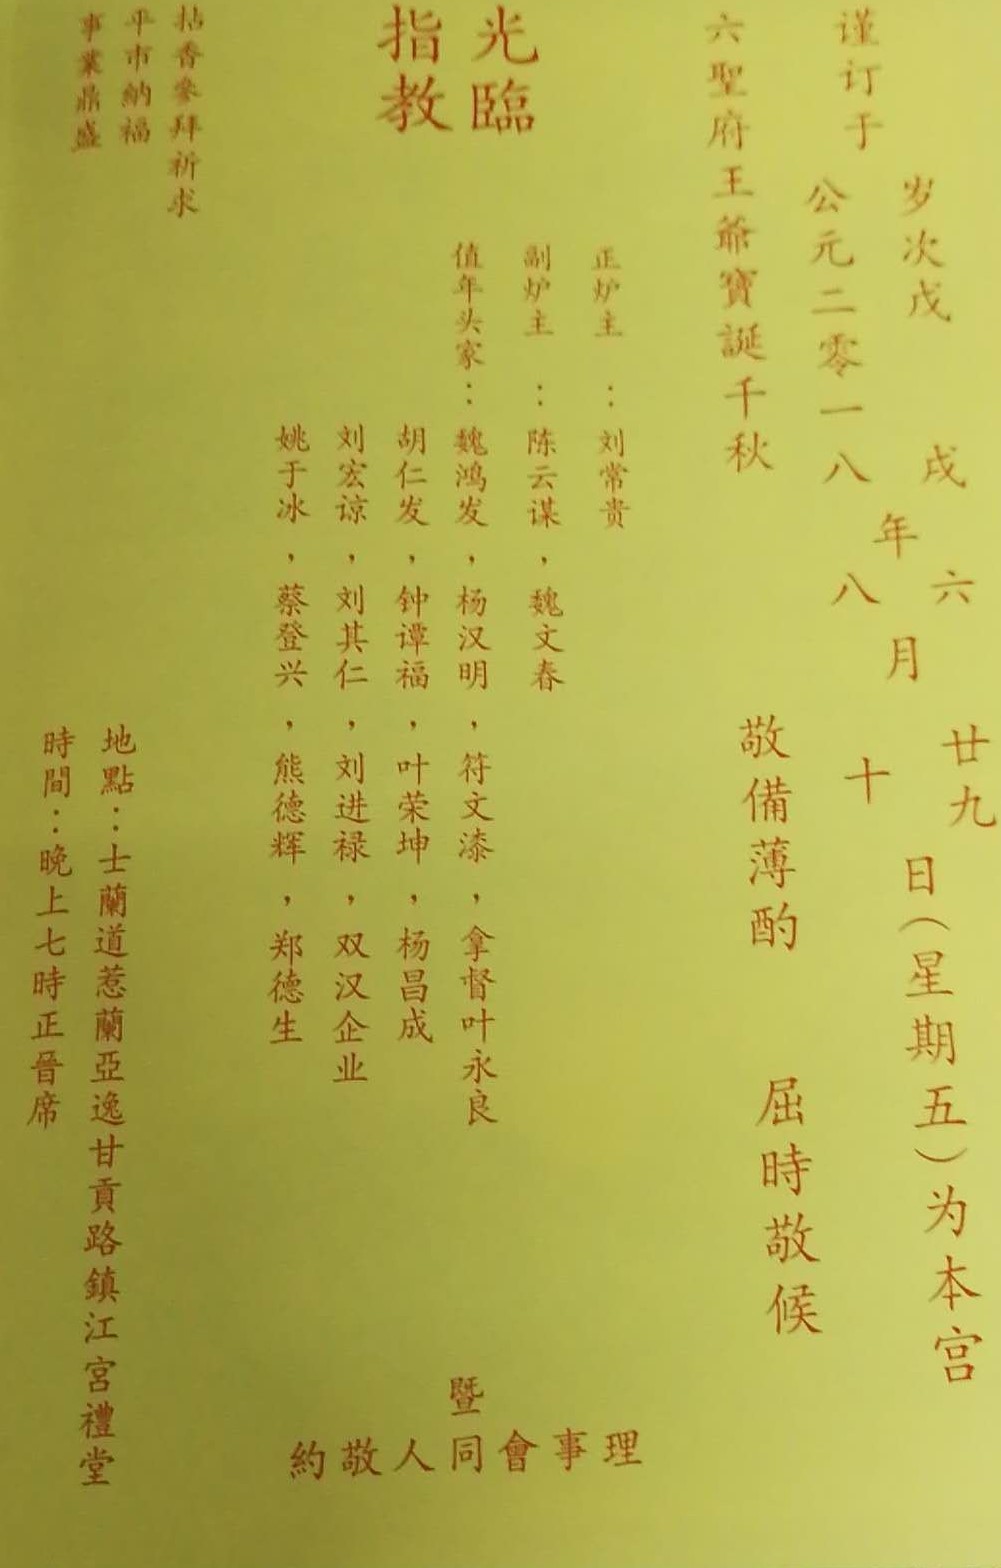 谨订于
岁次戊戌 六 廿九
年 月 日（星期五）为本宫
公元二零一八 八 十
六聖府王爺寶誕千秋
敬備薄酌 屈時敬候
光臨
指教
正炉主 ：刘常贵
副炉主 ：陈云谋，魏文春
值年头家：魏鸿发，杨汉明，符文漆，拿督叶永良
胡仁发，钟谭福，叶荣坤，杨昌成
刘宏谅，刘其仁，刘进禄，双汉企业
姚于冰，蔡登兴，熊德辉，郑德生
暨
理事會同人敬約
拈香參拜祈求
平市納福
事業鼎盛
地點：士蘭道惹蘭亞逸甘貢路鎮江宮禮堂
時間：晚上七時正晉席